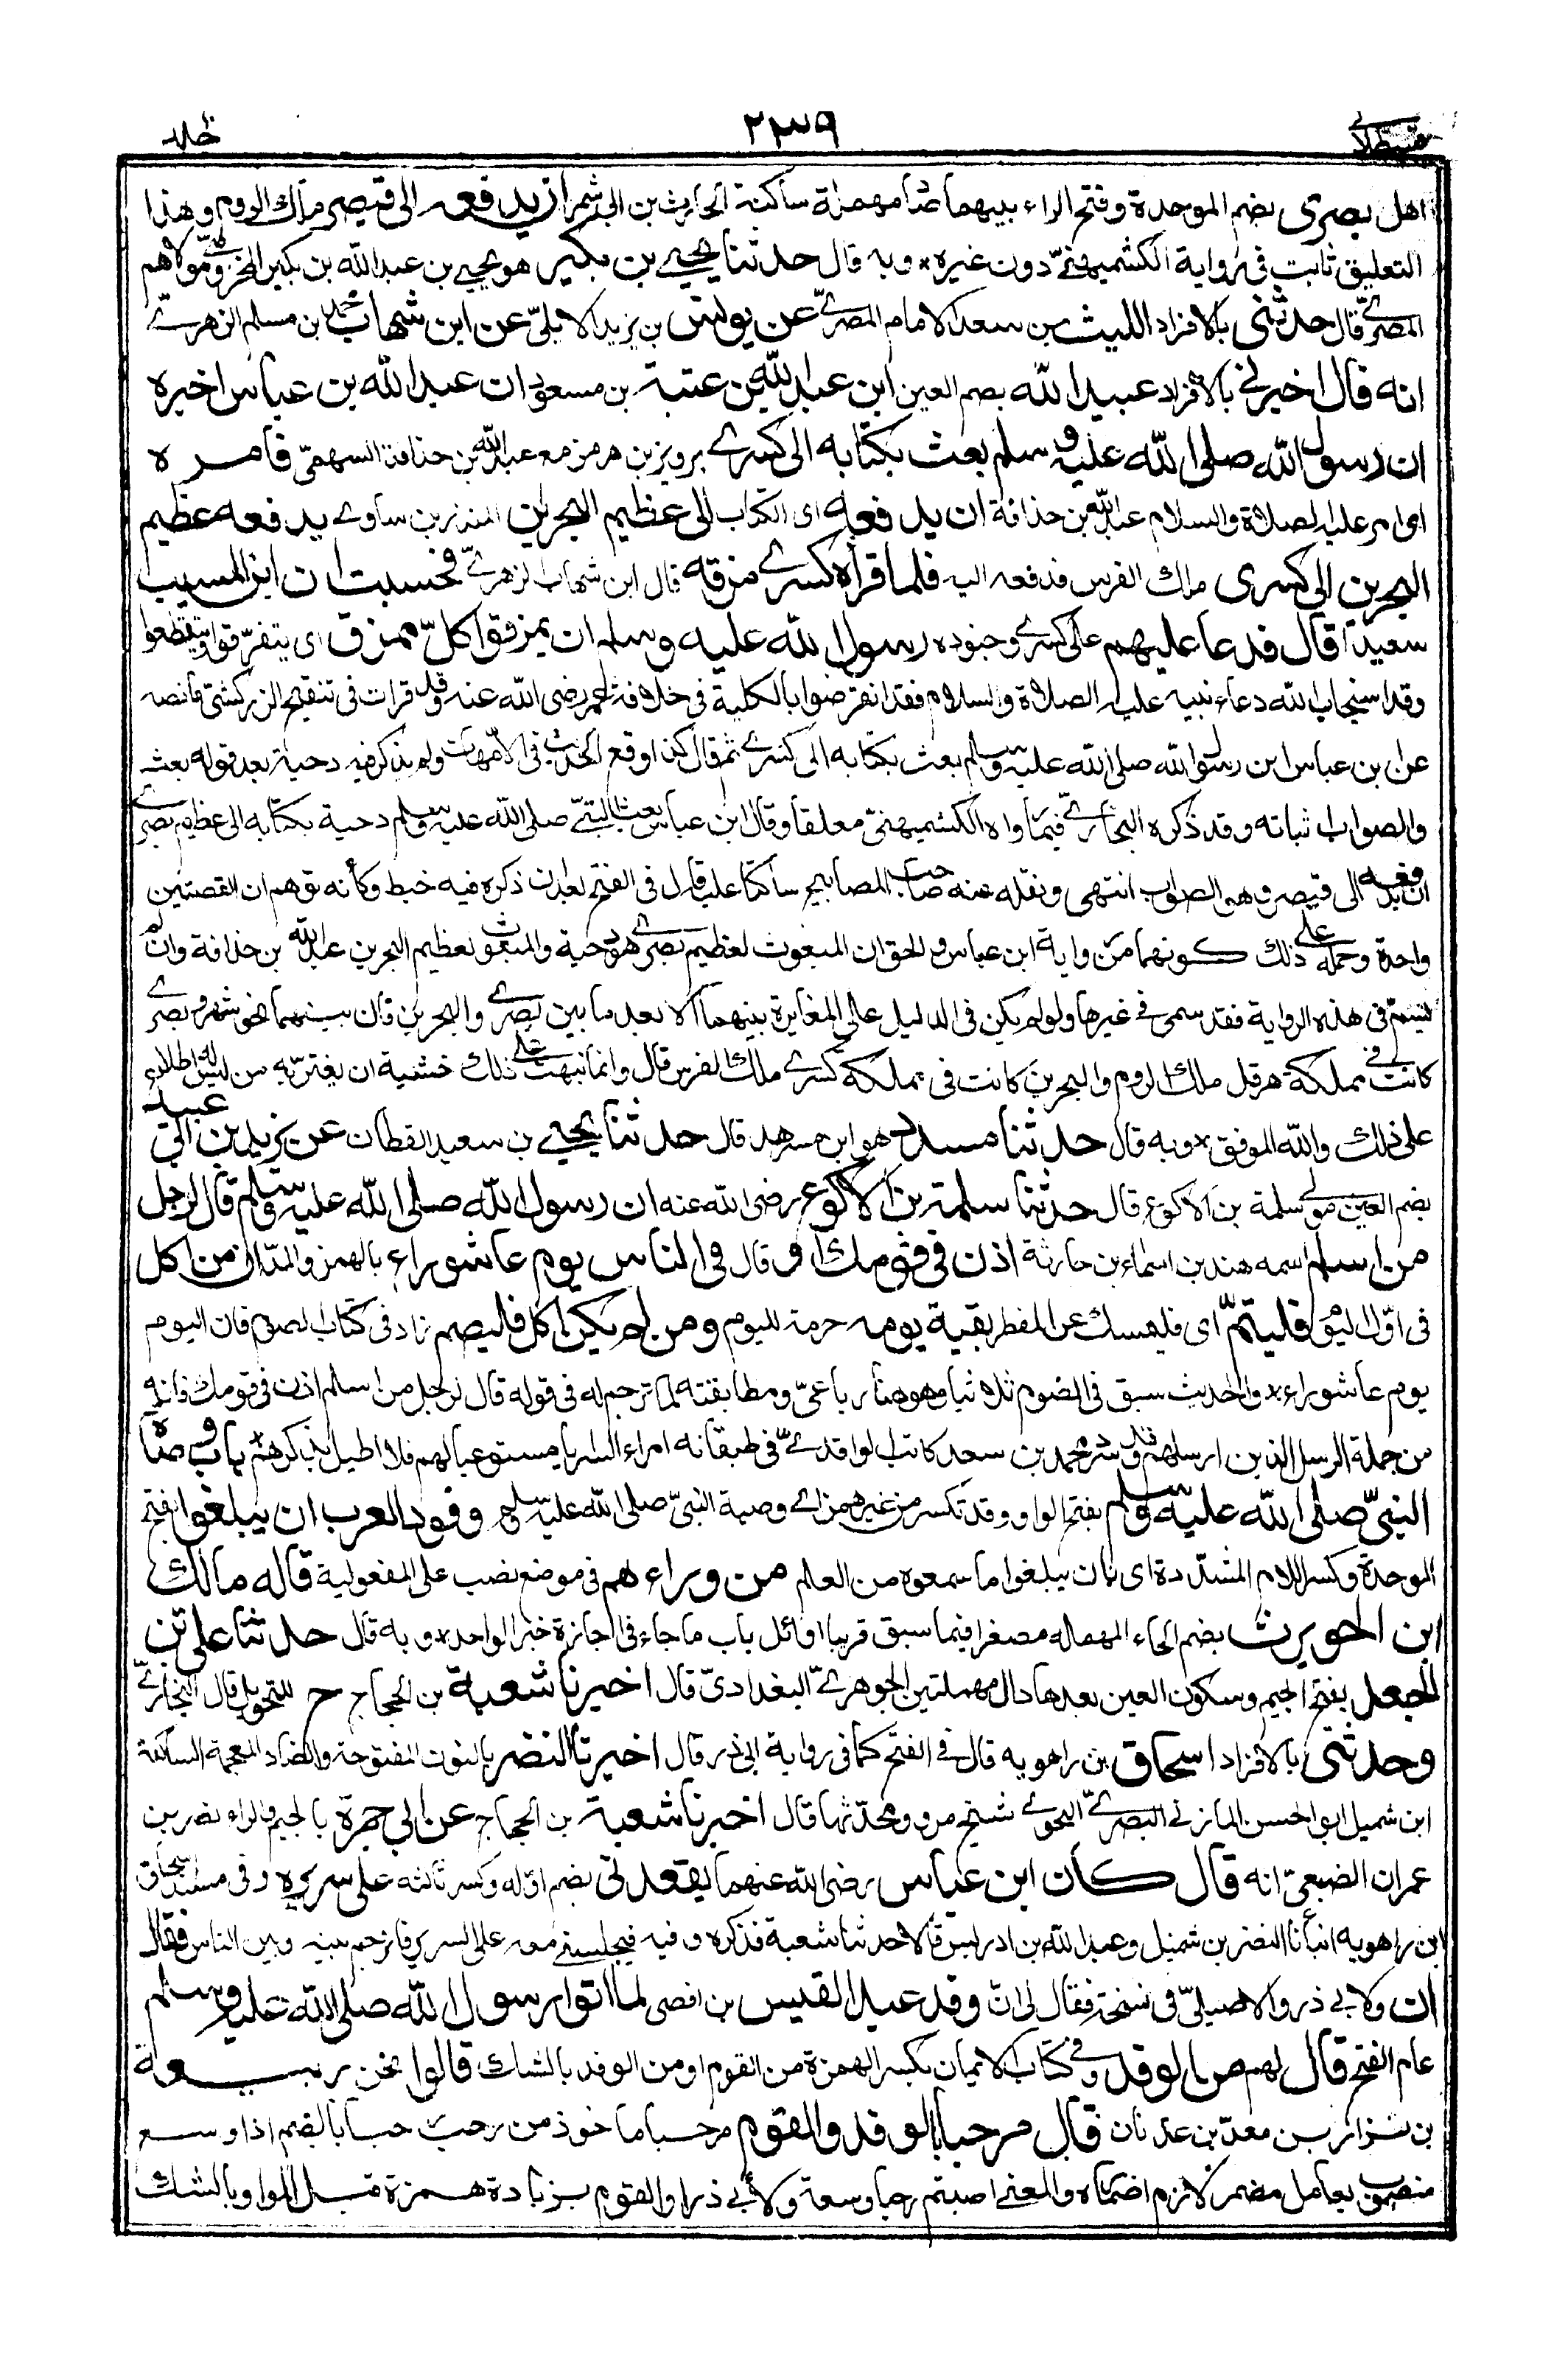 قسطلانى ٢٣٩ جلد
اهل بصرى بضم الموحدة وفتح الراء بينهما صاد مهملة ساكنة الحارث بن ابى شمر ان يدفعه الى قيصر ملك الروم وهذا
التعليق ثابت فى رواية الكشميهنىّ دون غيره * وبه قال حدثنا يحيى بن بكير هو يحيى بن عبد الله بن بكير المخزومىّ مولاهم
المصرىّ قال حدثنى بالافراد الليث بن سعد الامام المصرىّ عن يونس بن يزيد الايلىّ عن ابن شهاب محمد بن مسلم الزهرىّ
انه قال اخبرنى بالافراد عبيد الله بضم العين ابن عبد الله بن عتبة بن مسعود ان عبد الله بن عباس اخبره
ان رسول الله صلى الله عليه وسلم بعث بكتابه الى كسرى برويز بن هرمز مع عبد الله بن حذافة السهمىّ فامره
اى امر عليه الصلاة والسلام عبد الله بن حذافة ان يدفعه اى الكتاب الى عظيم البحرين المنذر بن ساوى يدفعه عظيم
البحرين الى كسرى ملك الفرس فدفعه اليه فلما قرأه كسرى مزقه قال ابن شهاب الزهرىّ فحسبت ان ابن المسيب
سعيدا قال فدعا عليهم على كسرى وجنوده رسول الله عليه وسلم ان يمزقوا كلّ ممزق اى يتفرّقوا ويتقطعوا
وقد استجاب الله دعاء نبيه عليه الصلاة والسلام فقد انقرضوا بالكلية فى خلافة عمر رضى الله عنه وقد قرات فى تنقيح الزركشى مانصه
عن بن عباس ان رسول الله صلى الله عليه وسلم بعث بكتابه الى كسرى ثم قال كذا وقع الحديث فى الامّهات ولم يذكر فيه دحية بعد قوله بعث
والصواب اثباته وقد ذكره البخارىّ فيما رواه الكشميهنىّ معلقا وقال ابن عباس بعث النبىّ صلى الله عليه وسلم دحية بكتابه الى عظيم بصرى
ان يدفعه الى قيصر وهو الصواب انتهى ونقله عنه صاحب المصابيح ساكتا عليه قال فى الفتح بعد ان ذكره فيه خبط وكأنه توهم ان القصتين
واحدة وحمله على ذلك كونهما من رواية ابن عباس والحق ان المبعوث لعظيم بصرى هو دحية والمبعوث لعظيم البحرين عبد الله بن حذافة وان لم
يسم فى هذه الرواية فقد سمى فى غيرها ولو لم يكن فى الدليل على المغايرة بينهما الا بعد ما بين بصرى والبحرين فان بينهما نحو شهر وبصرى
كانت فى مملكة هرقل ملك الروم والبحرين كانت فى مملكة كسرى ملك الفرس قال وانما نبهت على ذلك خشية ان يغترّ به من ليس له اطلاع
على ذلك والله الموفق * وبه قال حدثنا مسدد هو ابن مسرهد قال حدثنا يحيى بن سعيد القطان عن يزيد بن ابى عبيد
بضم العين مولى سلمة بن الاكوع قال حدثنا سلمة بن الاكوع رضى الله عنه ان رسول الله صلى الله عليه وسلم قال لرجل
من اسلم اسمه هند بن اسماء بن حارثة اذن فى قومك او قال فى الناس يوم عاشوراء بالهمز والمدّ ان من اكل
فى اوّل اليوم فليتمّ اى فليمسك عن المفطر بقية يومه حرمة لليوم ومن لم يكن اكل فليصم زاد فى كتاب الصوم فان اليوم
يوم عاشوراء * والحديث سبق فى الصوم ثلاثيا وهو هنا رباعىّ ومطابقته لما ترجم له فى قوله قال لرجل من اسلم اذن فى قومك فانه
من جملة الرسل الذين ارسلهم وقد سرد محمد بن سعد كاتب الواقدىّ فى طبقاته امراء السرايا مستوعبا لهم فلا اطيل بذكرهم * باب وصاة
النبىّ صلى الله عليه وسلم بفتح الواو وقد تكسر من غير همز اى وصية النبىّ صلى الله عليه وسلم وفود العرب ان يبلغوا بفتح
الموحدة وكسر اللام المشدّدة اى بان يبلغوا ما سمعوه من العلم من وراءهم فى موضع نصب على المفعولية قاله مالك
ابن الحويرث بضم الحاء المهملة مصغرا فيما سبق قريبا اوائل باب ما جاء فى اجازة خبر الواحد * وبه قال حدثنا على بن
الجعد بفتح الجيم وسكون العين بعدها دال مهملتين الجوهرىّ البغدادىّ قال اخبرنا شعبة بن الحجاج ح للتحويل قال البخارىّ
وحدثنى بالافراد اسحاق بن راهويه قال فى الفتح كما فى رواية ابى ذر قال اخبرنا النضر بالنون المفتوحة والضاد المعجمة الساكنة
ابن شميل ابو الحسن المازنى البصرىّ النحوى شيخ مرو ومحدّثها قال اخبرنا شعبة بن الحجاج عن ابى جمرة بالجيم والراء نصر بن
عمران الضبعىّ انه قال كان ابن عباس رضى الله عنهما يقعدنى بضم اوّله وكسر ثالثه على سريره وفى مسند اسحاق
ابن راهويه انبأنا النضر بن شميل وعبد الله بن ادريس قالا حدثنا شعبة فذكره وفيه فيجلسنى معه على السرير فاترجم بينه وبين الناس فقال
ان ولابى ذر والاصيلىّ فى نسخة فقال لى انّ وفد عبد القيس بن افصى لما اتوا رسول الله صلى الله عليه وسلم
عام الفتح قال لهم من الوفد وفى كتاب الايمان بكسر الهمزة من القوم او من الوفد بالشك قالوا نحن ربيعة
بن نزار بن معدّ بن عدنان قال مرحبا بالوفد والقوم مرحبا ماخوذ من رحب رحبا بالضم اذا وسع
منصوب بعامل مضمر لازم اضماره والمعنى اصبتم رحبا وسعة ولابى ذر او القوم بزيادة همزة قبل الواو بالشك